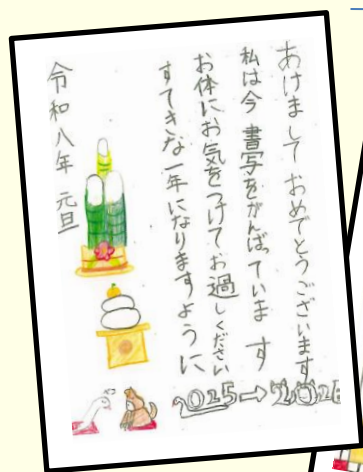 あけまして おめでとうございます
私は今 書写をがんばっています
お体にお気をつけてお過しください
すてきな一年になりますように
令和八年 元旦
2025→2026